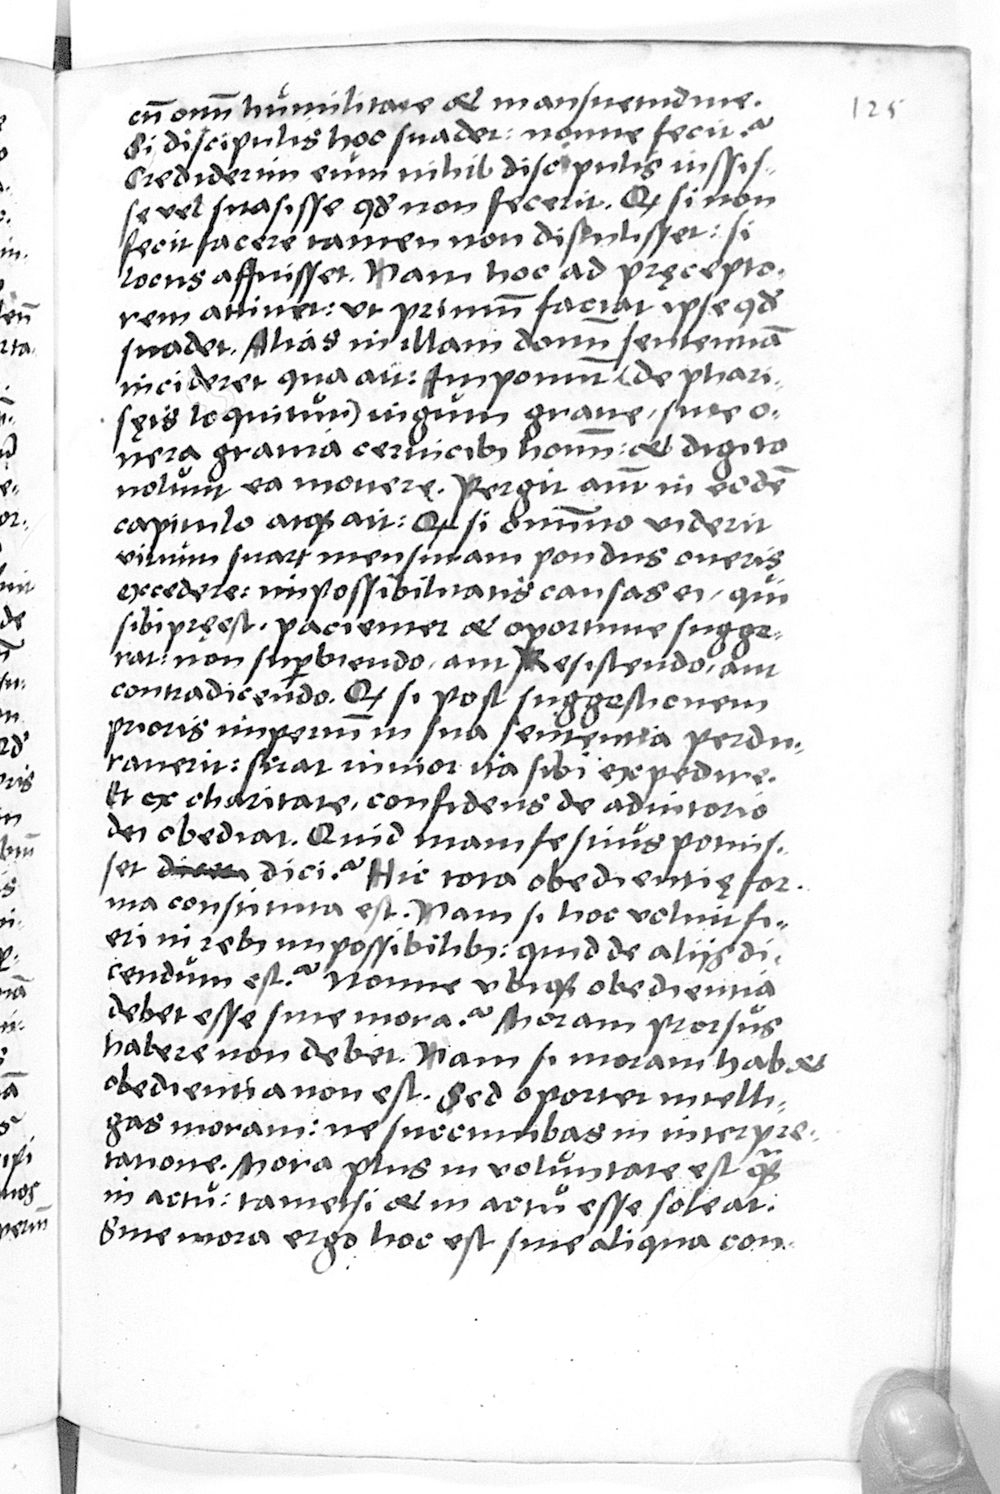 125
cū omī hŭmilitate & mansuetudine.
Si discipulis hoc suadet: nonne fecit?
Crediderim eum nihil discipulis iussis-
se vel suasisse qd non fecerit. Q si non
fecit facere tamen non distulisset: si
locus affuisset. Nam hoc ad pręcepto-
rem attinet: vt primū faciat ipse qd
suadet. Alias in illam domī sententiā
incideret qua ait: Imponunt (de phari-
sęis loquitur) iugum graue, siue o-
nera grauia ceruicibꝫ homī: & digito
nolunt ea mouere. Pergit aūt in eodē
capitulo atqꝫ ait: Q si omnīno viderit
virium suarꝝ mensuram pondus oneris
excedere: impossibilitatis causas ei, qui
sibi pręest, pacienter & oportune sugge-
rat: non suꝑbiendo, aut Resistendo, aut
contradicendo. Q si post suggestionem
prioris imperiū in sua sententia perdu-
rauerit: sciat iunior ita sibi expedire.
Et ex charitate, confidens de adiutorio
dei obediat. Quid manifestius potuis-
set dici? Hic tota obedientię for-
ma constituta est. Nam si hoc voluit fi-
eri in rebꝫ impossibilibꝫ: quid de alijs di-
cendum est? Nonne vbiqꝫ obedientia
debet esse sine mora? Moram prorsus
habere non debet. Nam si moram habet
obedientia non est. Sed oportet intelli-
gas moram: ne succumbas in interpre-
tatione. Mora plus in voluntate est qꝫ̄
in actŭ: tametsi & in actŭ esse soleat.
Sine mora ergo hoc est sine aliqua con-